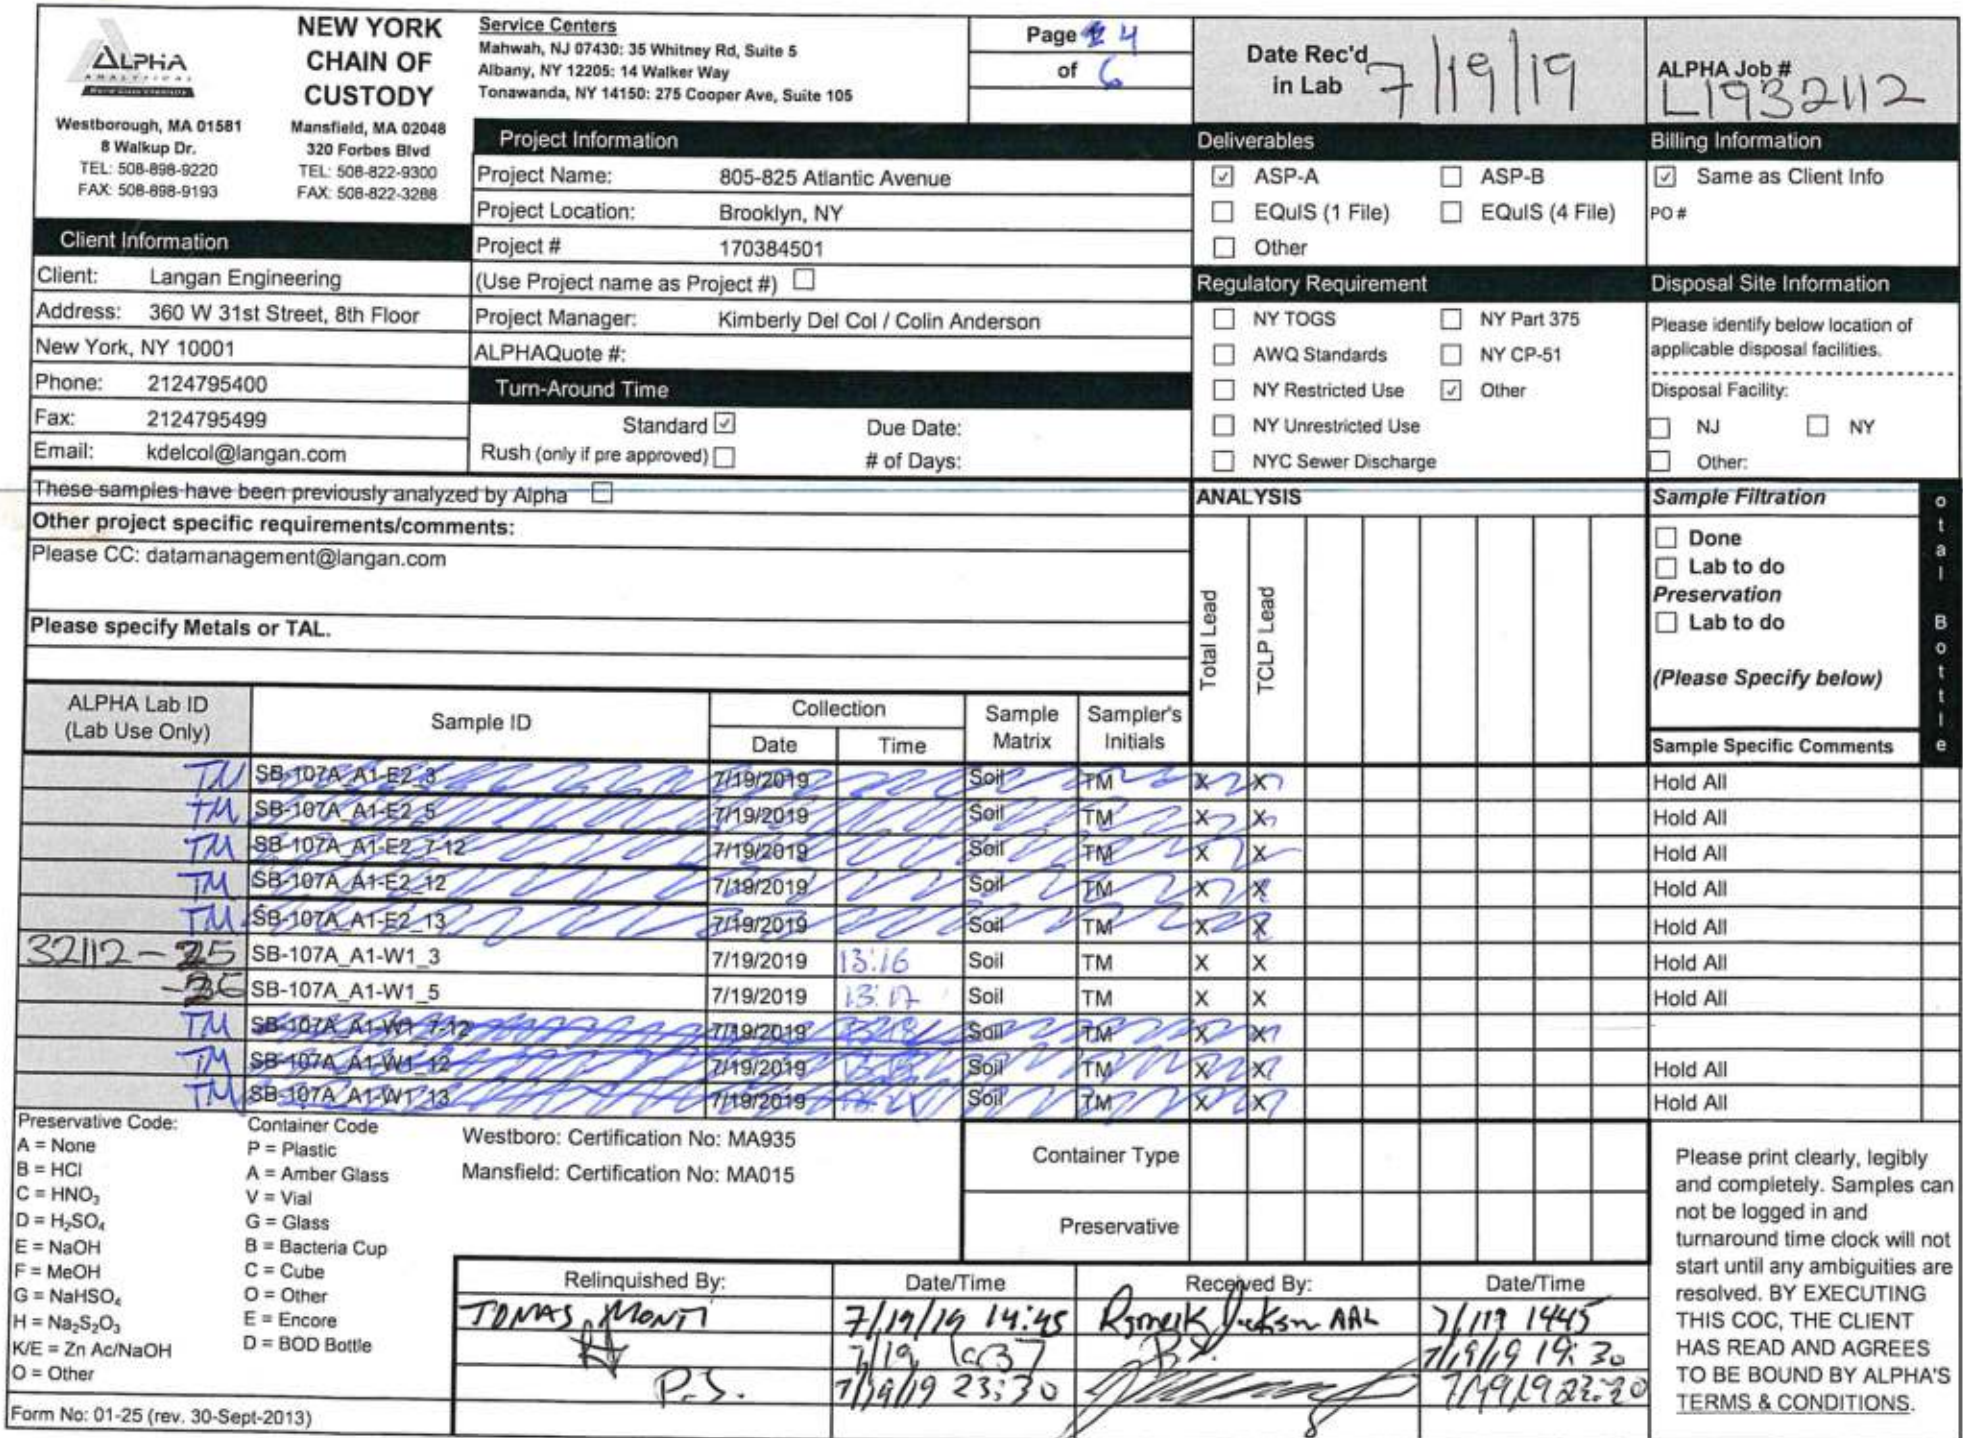 ALPHA
ANALYTICAL
World Class Chemistry
NEW YORK
CHAIN OF
CUSTODY
Westborough, MA 01581
8 Walkup Dr.
TEL: 508-898-9220
FAX: 508-898-9193
Mansfield, MA 02048
320 Forbes Blvd
TEL: 508-822-9300
FAX: 508-822-3288
Service Centers
Mahwah, NJ 07430: 35 Whitney Rd, Suite 5
Albany, NY 12205: 14 Walker Way
Tonawanda, NY 14150: 275 Cooper Ave, Suite 105
Page 4
of 6
Date Rec'd
in Lab 7/19/19
ALPHA Job #
L1932112
Client Information
Client: Langan Engineering
Address: 360 W 31st Street, 8th Floor
New York, NY 10001
Phone: 2124795400
Fax: 2124795499
Email: kdelcol@langan.com
Project Information
Project Name: 805-825 Atlantic Avenue
Project Location: Brooklyn, NY
Project # 170384501
(Use Project name as Project #)
Project Manager: Kimberly Del Col / Colin Anderson
ALPHAQuote #:
Turn-Around Time
Standard Due Date:
Rush (only if pre approved) # of Days:
Deliverables
ASP-A ASP-B
EQuIS (1 File) EQuIS (4 File)
Other
Regulatory Requirement
NY TOGS NY Part 375
AWQ Standards NY CP-51
NY Restricted Use Other
NY Unrestricted Use
NYC Sewer Discharge
Billing Information
Same as Client Info
PO #
Disposal Site Information
Please identify below location of
applicable disposal facilities.
Disposal Facility:
NJ NY
Other:
These samples have been previously analyzed by Alpha
Other project specific requirements/comments:
Please CC: datamanagement@langan.com
Please specify Metals or TAL.
ANALYSIS
Total Lead
TCLP Lead
Sample Filtration
Done
Lab to do
Preservation
Lab to do
(Please Specify below)
otal Bottle
ALPHA Lab ID
(Lab Use Only)
Sample ID
Collection
Date Time
Sample
Matrix
Sampler's
Initials
Sample Specific Comments
TM SB-107A_A1-E2_3 7/19/2019 Soil TM X X Hold All
TM SB-107A_A1-E2_5 7/19/2019 Soil TM X X Hold All
TM SB-107A_A1-E2_7-12 7/19/2019 Soil TM X X Hold All
TM SB-107A_A1-E2_12 7/19/2019 Soil TM X X Hold All
TM SB-107A_A1-E2_13 7/19/2019 Soil TM X X Hold All
32112-25 SB-107A_A1-W1_3 7/19/2019 13:16 Soil TM X X Hold All
-26 SB-107A_A1-W1_5 7/19/2019 13:17 Soil TM X X Hold All
TM SB-107A_A1-W1_7-12 7/19/2019 Soil TM X X
TM SB-107A_A1-W1_12 7/19/2019 Soil TM X X Hold All
TM SB-107A_A1-W1_13 7/19/2019 Soil TM X X Hold All
Preservative Code:
A = None
B = HCl
C = HNO₃
D = H₂SO₄
E = NaOH
F = MeOH
G = NaHSO₄
H = Na₂S₂O₃
K/E = Zn Ac/NaOH
O = Other
Container Code
P = Plastic
A = Amber Glass
V = Vial
G = Glass
B = Bacteria Cup
C = Cube
O = Other
E = Encore
D = BOD Bottle
Westboro: Certification No: MA935
Mansfield: Certification No: MA015
Container Type
Preservative
Please print clearly, legibly
and completely. Samples can
not be logged in and
turnaround time clock will not
start until any ambiguities are
resolved. BY EXECUTING
THIS COC, THE CLIENT
HAS READ AND AGREES
TO BE BOUND BY ALPHA'S
TERMS & CONDITIONS.
Relinquished By: Date/Time Received By: Date/Time
TOMAS MONTI 7/19/19 14:45 AAL 1445
7/19 7/19/19 19:30
P.S. 7/19/19 23:30
Form No: 01-25 (rev. 30-Sept-2013)